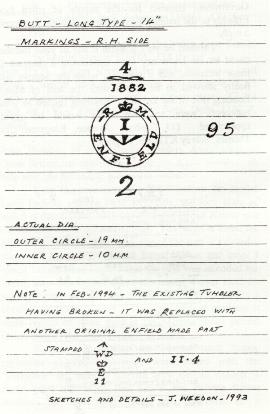 BUTT - LONG TYPE - 14"
MARKINGS - R.H SIDE
4
1882
R M
I
ENFIELD
95
2
ACTUAL DIA
OUTER CIRCLE - 19 MM.
INNER CIRCLE - 10 M.M
NOTE: IN FEB-1994 - THE EXISTING TUMBLER
HAVING BROKEN - IT WAS REPLACED WITH
ANOTHER ORIGINAL ENFIELD MADE PART
STAMPED WD AND II·4
E
11
SKETCHES AND DETAILS - J. WEEDON - 1993